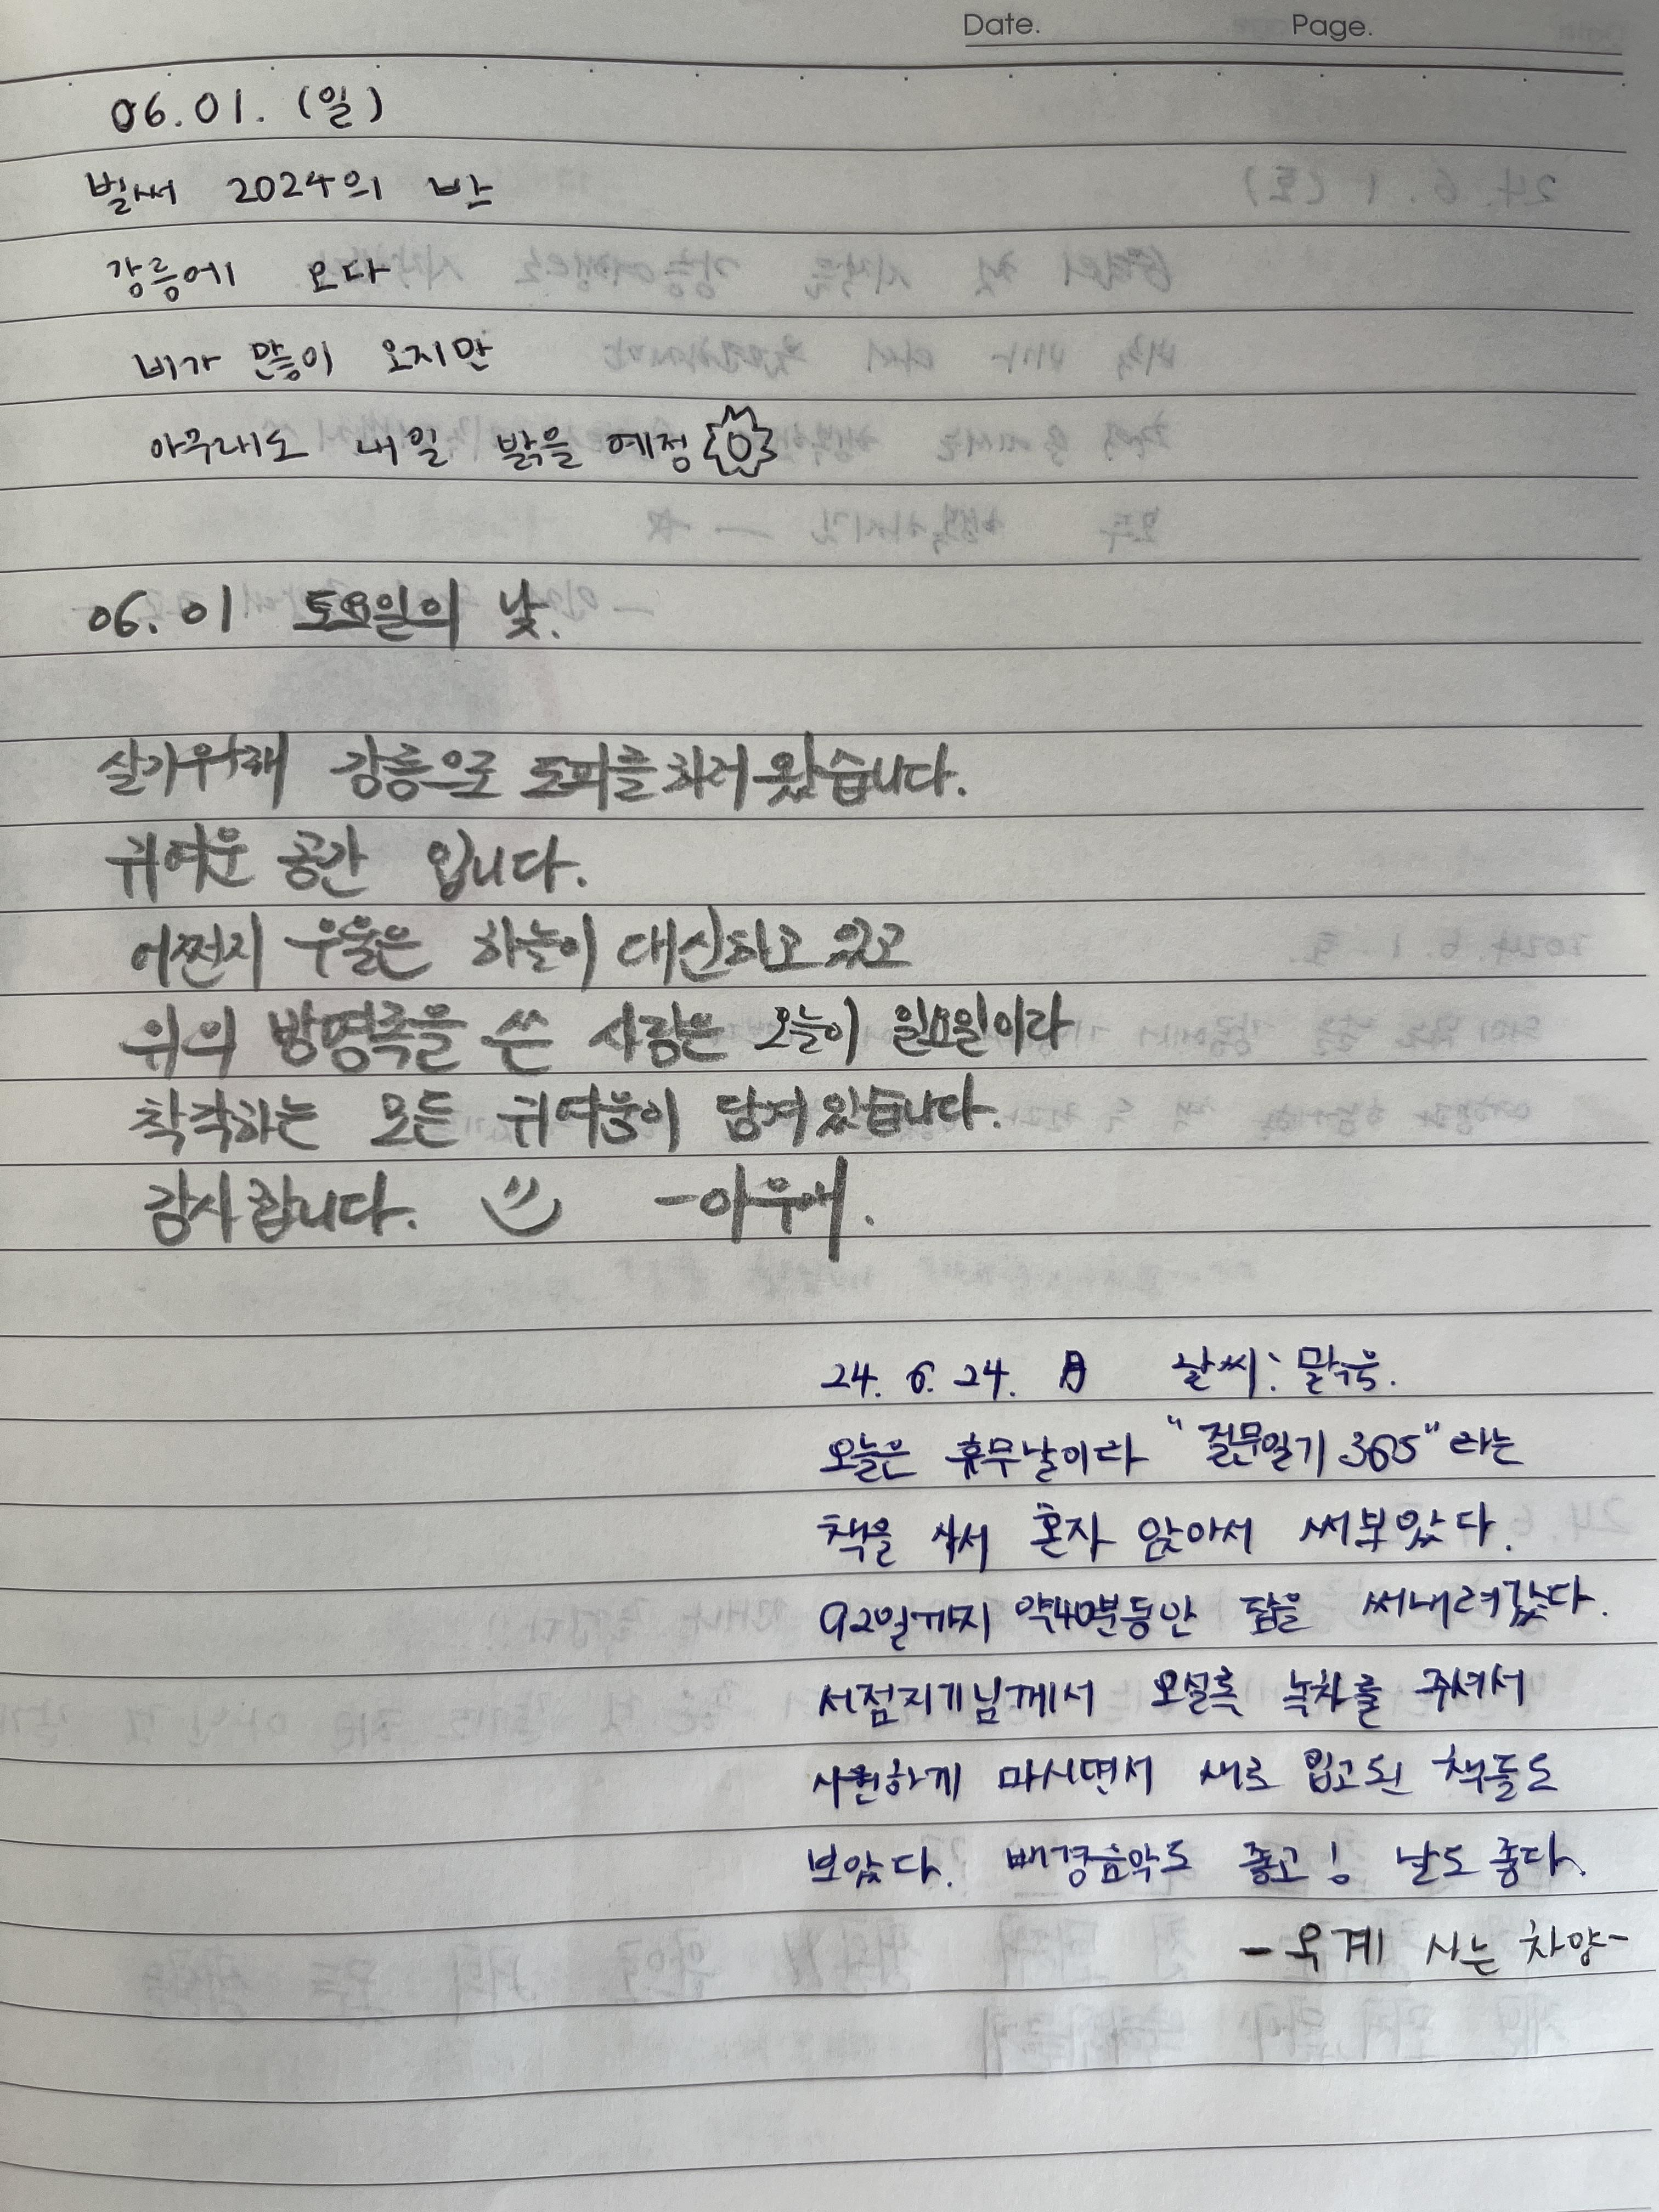 Date. Page.
06.01. (일)
벌써 2024의 반
강릉에 오다
비가 많이 오지만
아무래도 내일 밝을 예정
06.01 토요일의 낮.
살기위해 강릉으로 도피를 하러 왔습니다.
귀여운 공간 입니다.
어쩐지 우울은 하늘이 대신하고 있고
위의 방명록을 쓴 사람은 오늘이 일요일이라
착각하는 모든 귀여움이 담겨있습니다.
감사합니다. -아우애.
24. 6. 24. 月 날씨: 맑음.
오늘은 휴무날이라 "질문일기 365" 라는
책을 사서 혼자 앉아서 써보았다.
92일까지 약40분동안 답을 써내려갔다.
서점지기님께서 오설록 녹차를 주셔서
시원하게 마시면서 새로 입고된 책들도
보았다. 배경음악도 좋고! 날도 좋다.
-옥계 사는 차양-